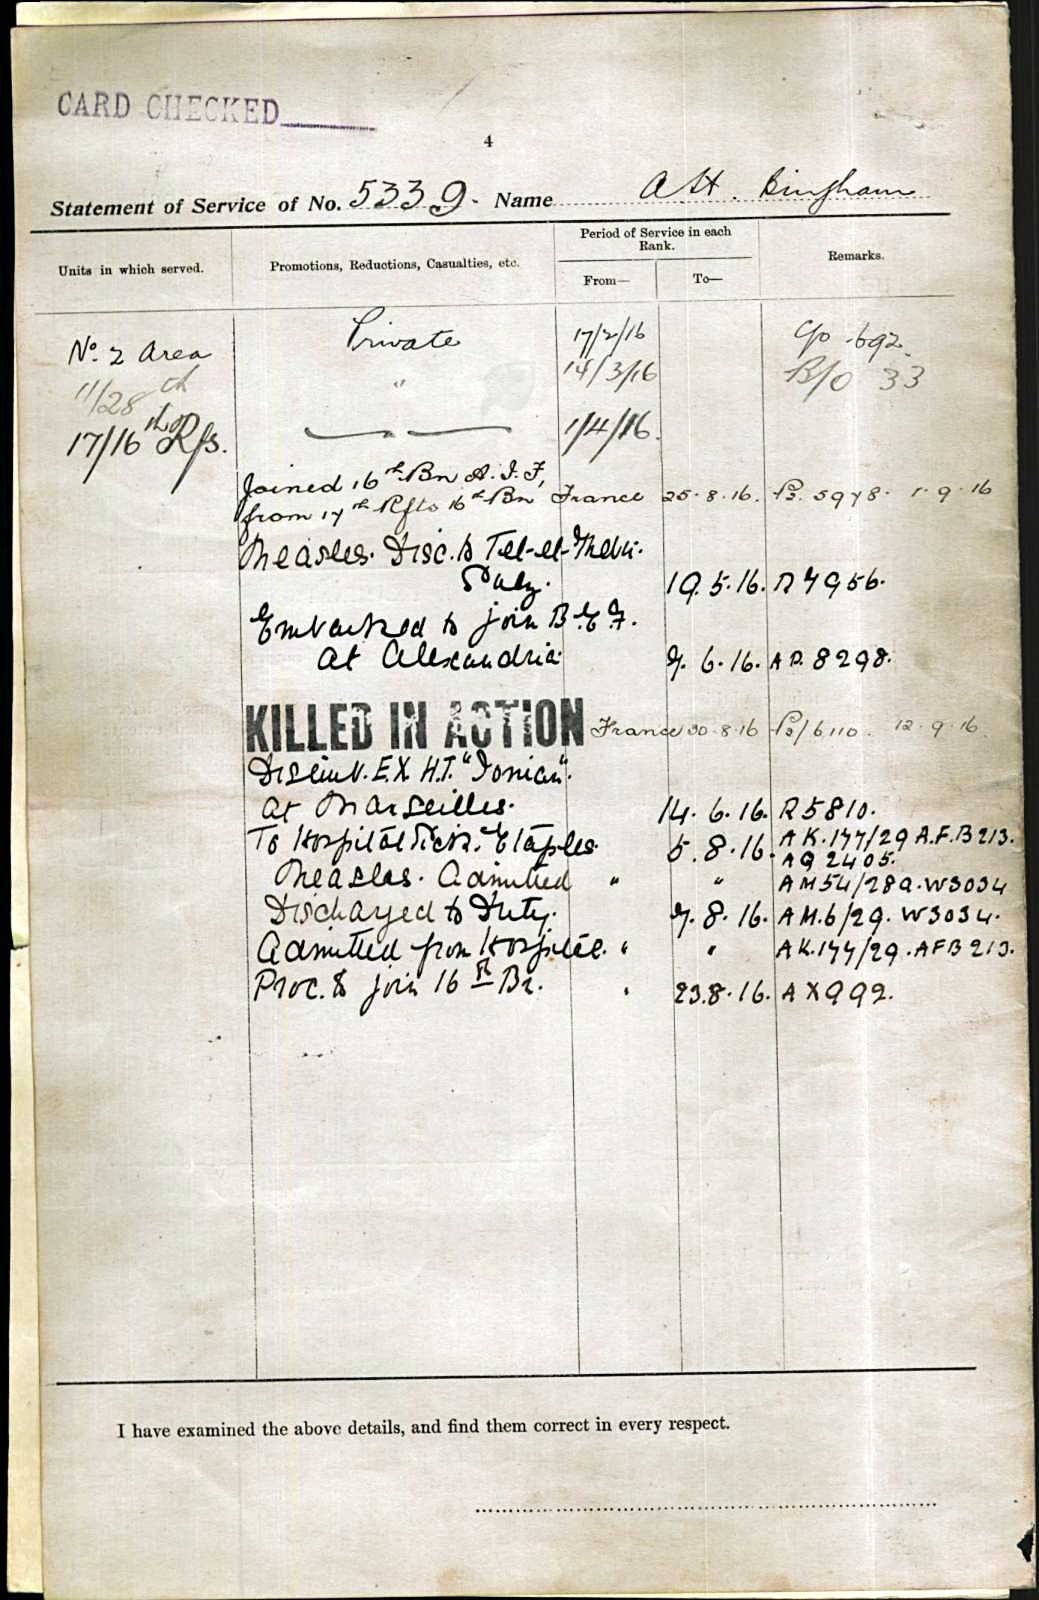 CARD CHECKED
4
Statement of Service of No. 5339. Name A H. Bingham
Units in which served. Promotions, Reductions, Casualties, etc. Period of Service in each Rank. From— To— Remarks.
No. 2 Area Private 17/2/16 C/o 692.
11/28th " 14/3/16 B/O 33
17/16th Rfs. 1/4/16.
Joined 16th Bn A.I.F,
from 17th Rfts 16th Bn France 25.8.16. P2. 5978. 1.9.16
Measles. Disc. to Tel-el-
Duty. 19.5.16. R7956.
Embarked to join B.E.F.
at Alexandria. 7.6.16. A.D. 8298.
KILLED IN ACTION France 30.8.16 P2/6110. 12.9.16.
Disemb. EX H.T. "Ionian".
at Marseilles. 14.6.16. R5810.
To Hospital Sick. Etaples. 5.8.16. AK.177/29 A.F.B213.
AQ 2405.
Measles. Admitted " " AM54/289. W3034
Discharged to Duty. 7.8.16. AM.6/29. W3034.
Admitted from Hospital. " " AK.177/29. AFB213.
Proc. to join 16th Bn. " 23.8.16. AX992.
I have examined the above details, and find them correct in every respect.